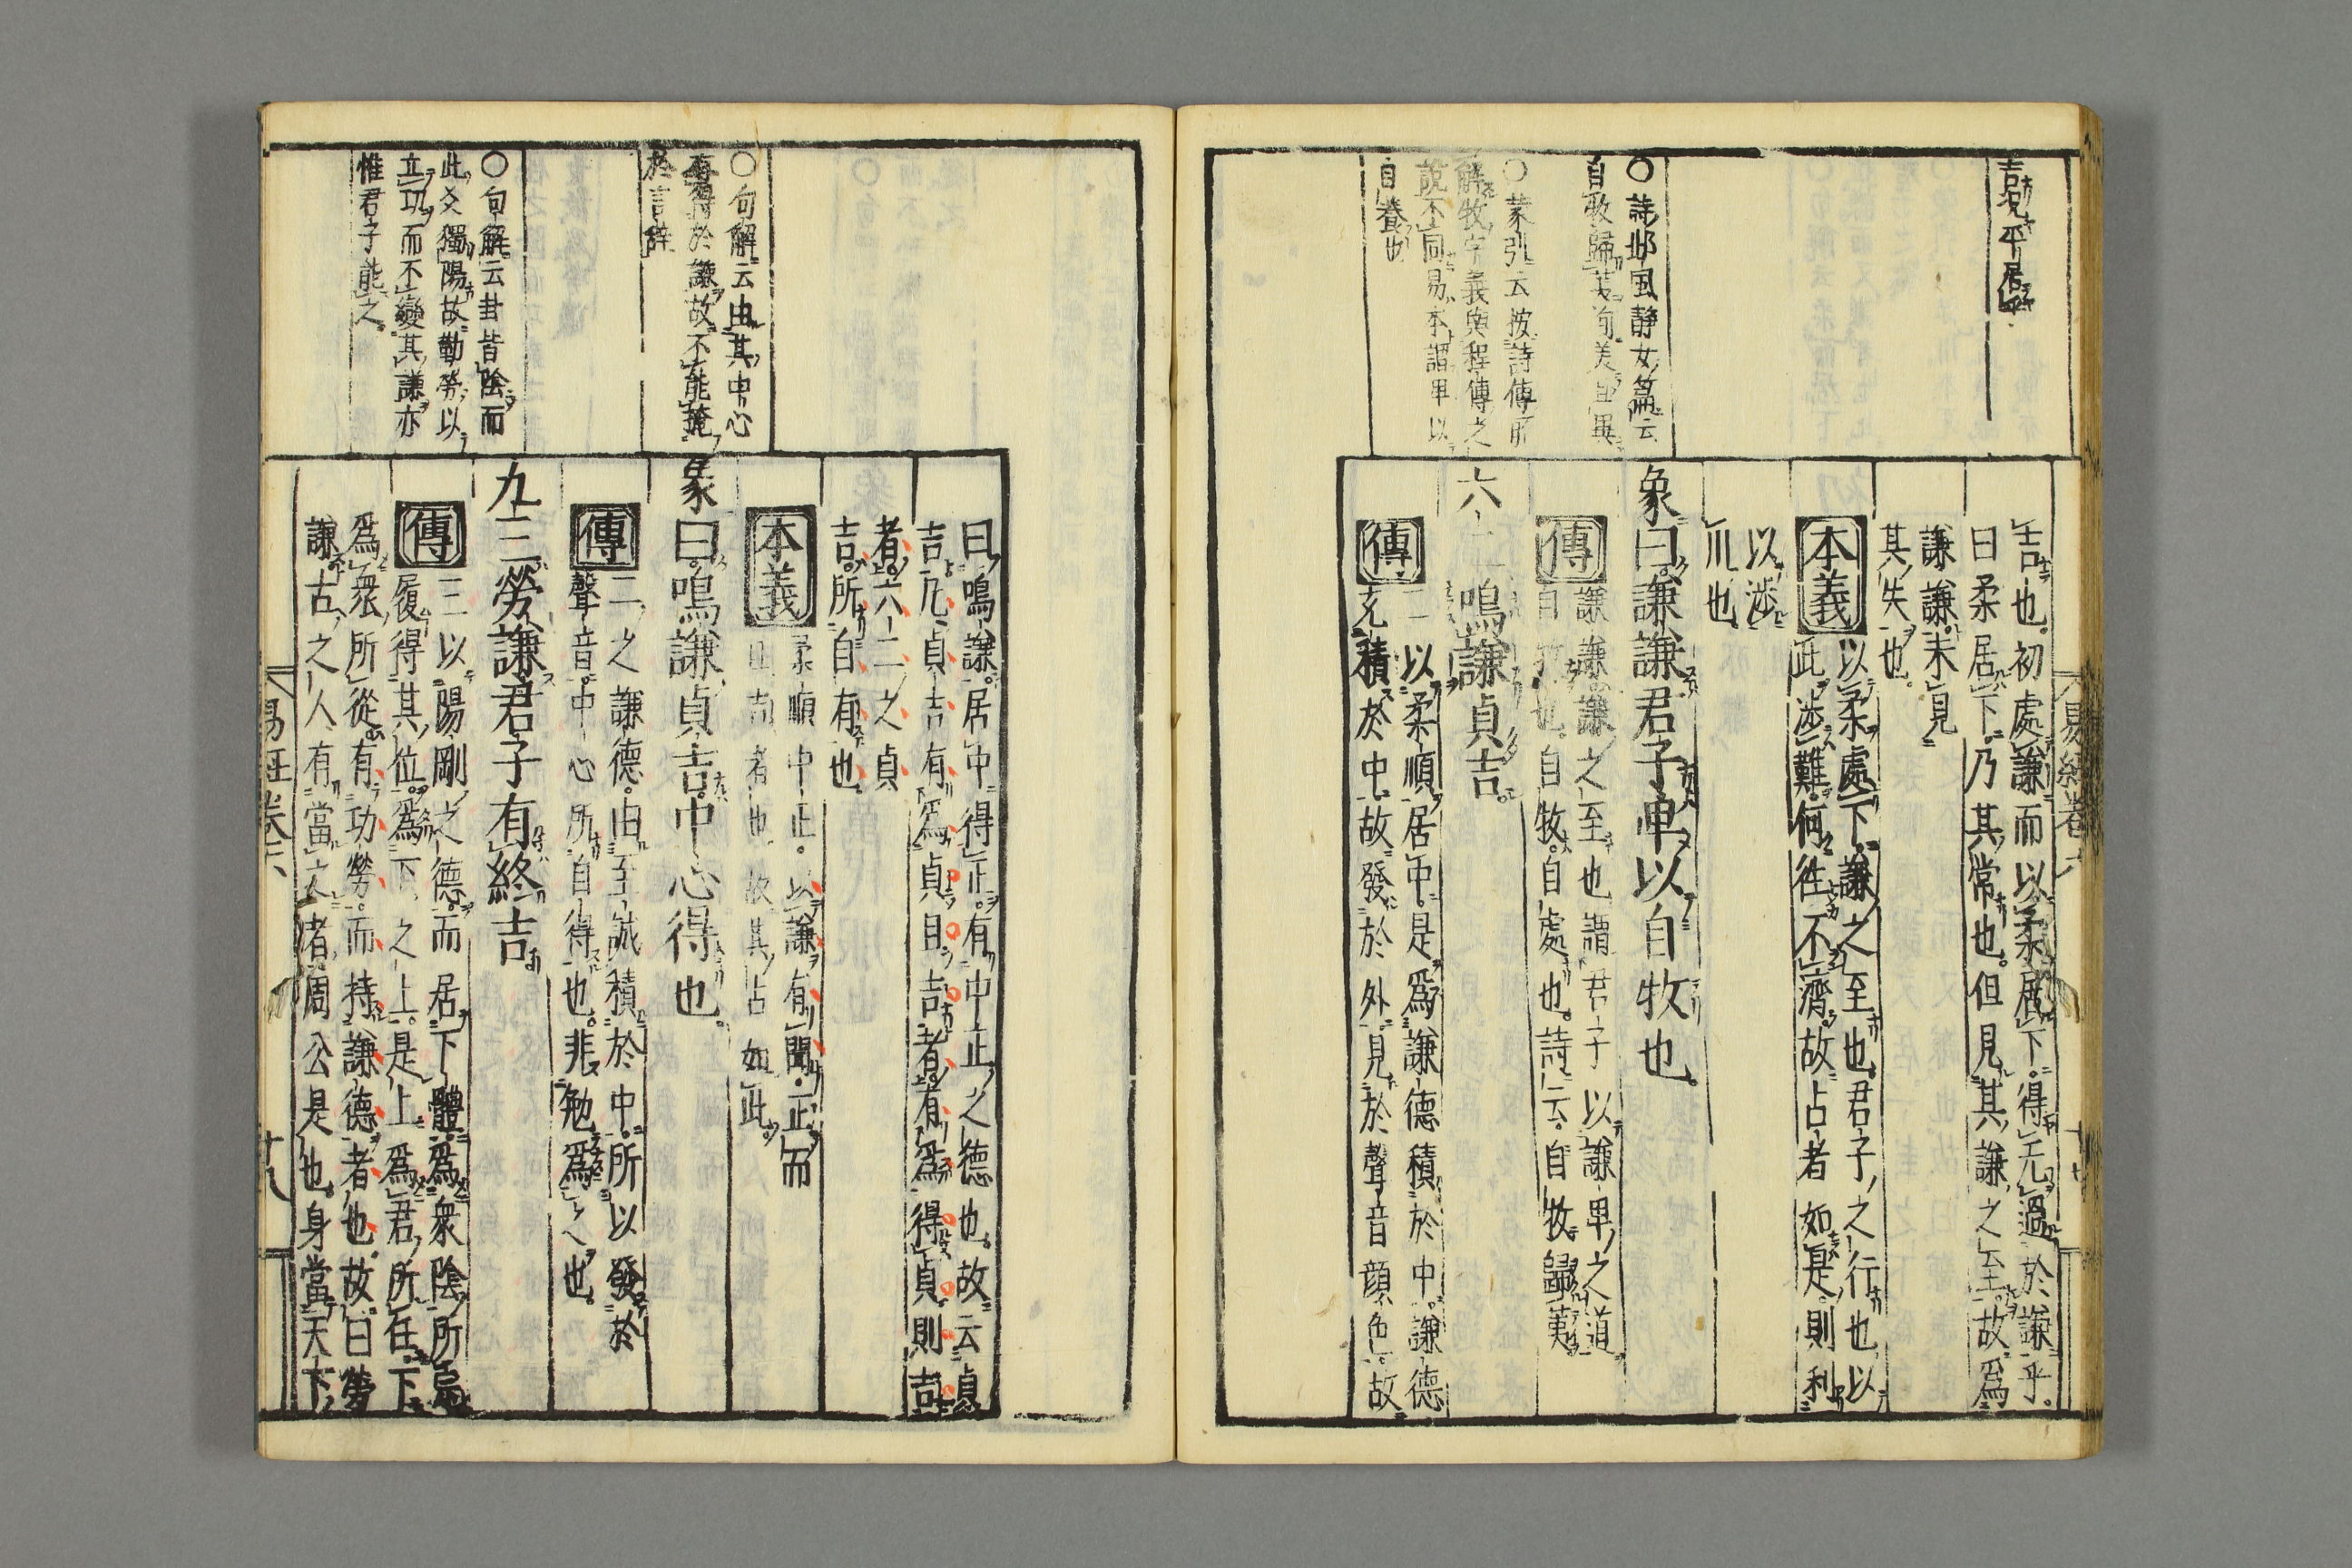 吉兄平居乎
○詩邶風静女篇云
自牧歸荑洵美且異
○蒙引云按詩傳所
解牧字義與程傳之
説不同易本謂卑以
自養也
易經卷六
十七
吉也初處謙而以柔居下得无過於謙乎
曰柔居下乃其常也但見其謙之至故爲
謙謙未見
其失也
本義
以柔處下謙之至也君子之行也以
此渉難何徃不濟故占者如是則利
以渉
川也
象曰謙謙君子卑以自牧也
傳
謙謙謙之至也謂君子以謙卑之道
自牧也自牧自處也詩云自牧歸荑
六二鳴謙貞吉
傳
二以柔順居中是爲謙德積於中謙德
充積於中故發於外見於聲音顔色故
○句解云由其中心
有得於謙故不能掩
於言辭
○句解云卦皆陰而
此爻獨陽故勤勞以
立功而不變其謙亦
惟君子能之
曰鳴謙居中得正有中正之德也故云貞
吉凡貞吉有爲貞且吉者有爲得貞則吉
者六二之貞
吉所自有也
本義
柔順中正以謙有聞正而
且吉者也故其占如此
象曰鳴謙貞吉中心得也
傳
二之謙德由至誠積於中所以發於
聲音中心所自得也非勉爲之也
九三勞謙君子有終吉
傳
三以陽剛之德而居下體爲衆陰所
履得其位爲下之上是上爲君所任下
爲衆所從有功勞而持謙德者也故曰勞
謙古之人有當之者周公是也身當天下
易經卷六
十八